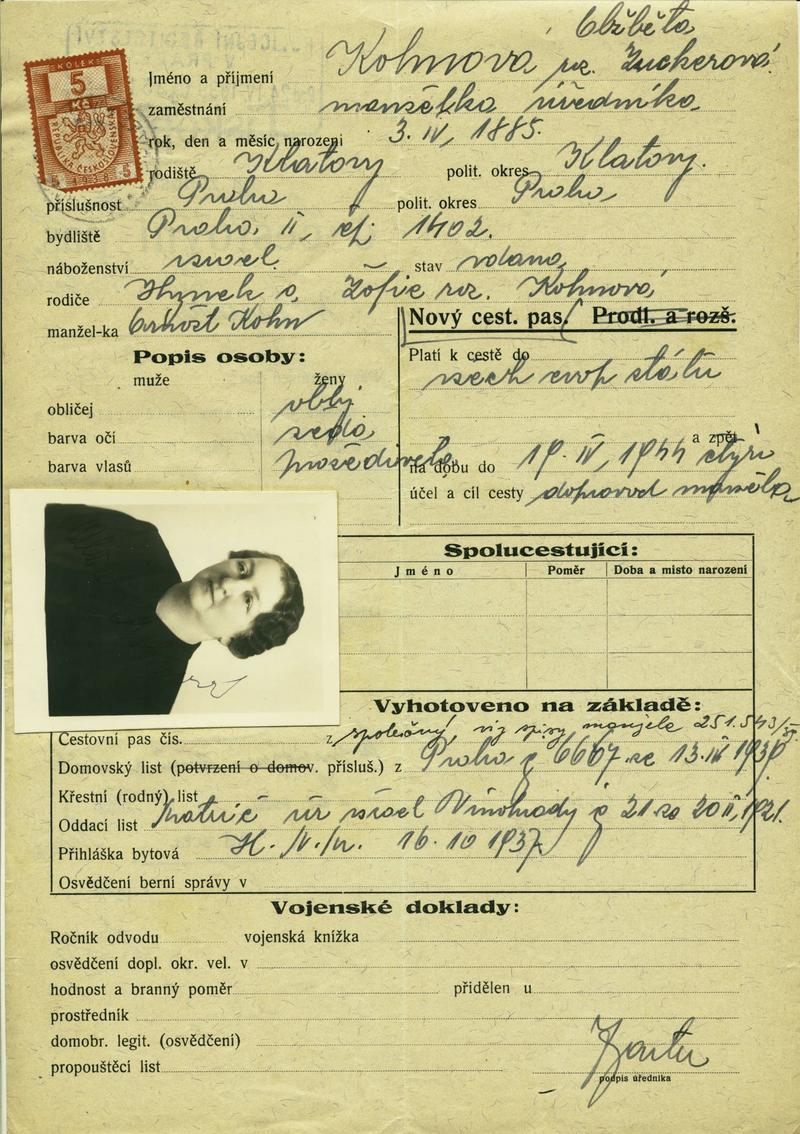 Alžběta
Jméno a příjmení Kohnová roz. Zuckerová
zaměstnání manželka úředníka
rok, den a měsíc narození 3. IV. 1885.
rodiště Klatovy polit. okres Klatovy.
příslušnost Praha polit. okres Praha
bydliště Praha II, čp. 1402.
náboženství israel. stav vdaná
rodiče Hynek a Žofie roz. Kohnová
manžel-ka Arnošt Kohn
KOLEK
5
Kč
REPUBLIKA ČESKOSLOVENSKÁ
5 5
Nový cest. pas. Prodl. a rozš.
Popis osoby:
muže ženy
obličej obl.
barva očí šedá
barva vlasů prošedivělá
Platí k cestě do
všech evrop. států
a zpět
na dobu do 19. IV. 1944 čtyři
účel a cíl cesty doprovod manžela
Spolucestující:
Jméno Poměr Doba a místo narození
Vyhotoveno na základě:
Cestovní pas čís. z společný, viz spisy manžela 251.543/
Domovský list (potvrzení o domov. přísluš.) z Praha č 6607 ze 13. IV 1939
Křestní (rodný) list
Oddací list Matric úř israel Vinohrady č 21 ze 20 II, 1921.
Přihláška bytová 16. 10 1937
Osvědčení berní správy v
Vojenské doklady:
Ročník odvodu vojenská knížka
osvědčení dopl. okr. vel. v
hodnost a branný poměr přidělen u
prostředník
domobr. legit. (osvědčení)
propouštěcí list
podpis úředníka